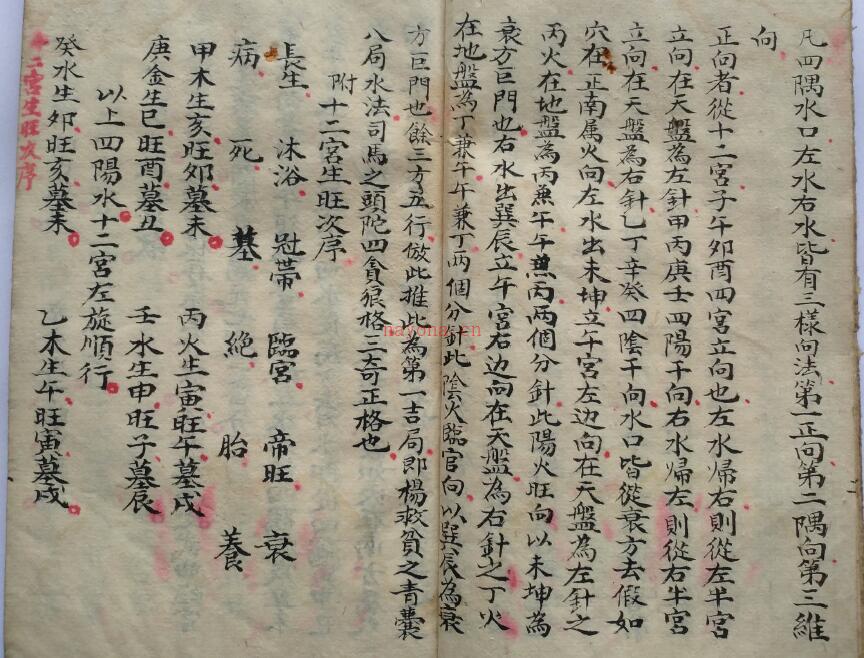 凡四隅水口左水右水皆有三樣向法第一正向第二隅向第三維
向
正向者從十二宮子午卯酉四宮立向也左水歸右則從左半宮
立向在天盤為左針甲丙庚壬四陽干向右水歸左則從右半宮
立向在天盤為右針乙丁辛癸四陰干向水口皆從衰方去假如
穴在正南属火向左水出未坤立午宮左边向在天盤為左針之
丙火在地盤為丙兼午午兼丙兩個分針此陽火旺向以未坤為
衰方巨門也右水出巽辰立午宮右边向在天盤為右針之丁火
在地盤為丁兼午午兼丁两個分針此陰火臨官向以巽辰為衰
方巨門也餘三方五行倣此推此為第一吉局即楊救貧之青囊
八局水法司馬之頭陀四貪狼格三奇正格也
附十二宮生旺次序
長生 沐浴 冠帶 臨官 帝旺 衰
病 死 墓 絶 胎 養
甲木生亥旺卯墓未 丙火生寅旺午墓戌
庚金生巳旺酉墓丑 壬水生申旺子墓辰
以上四陽水十二宮左旋順行
癸水生卯旺亥墓未 乙木生午旺寅墓戌
十二宮生旺次序
nayona.cn